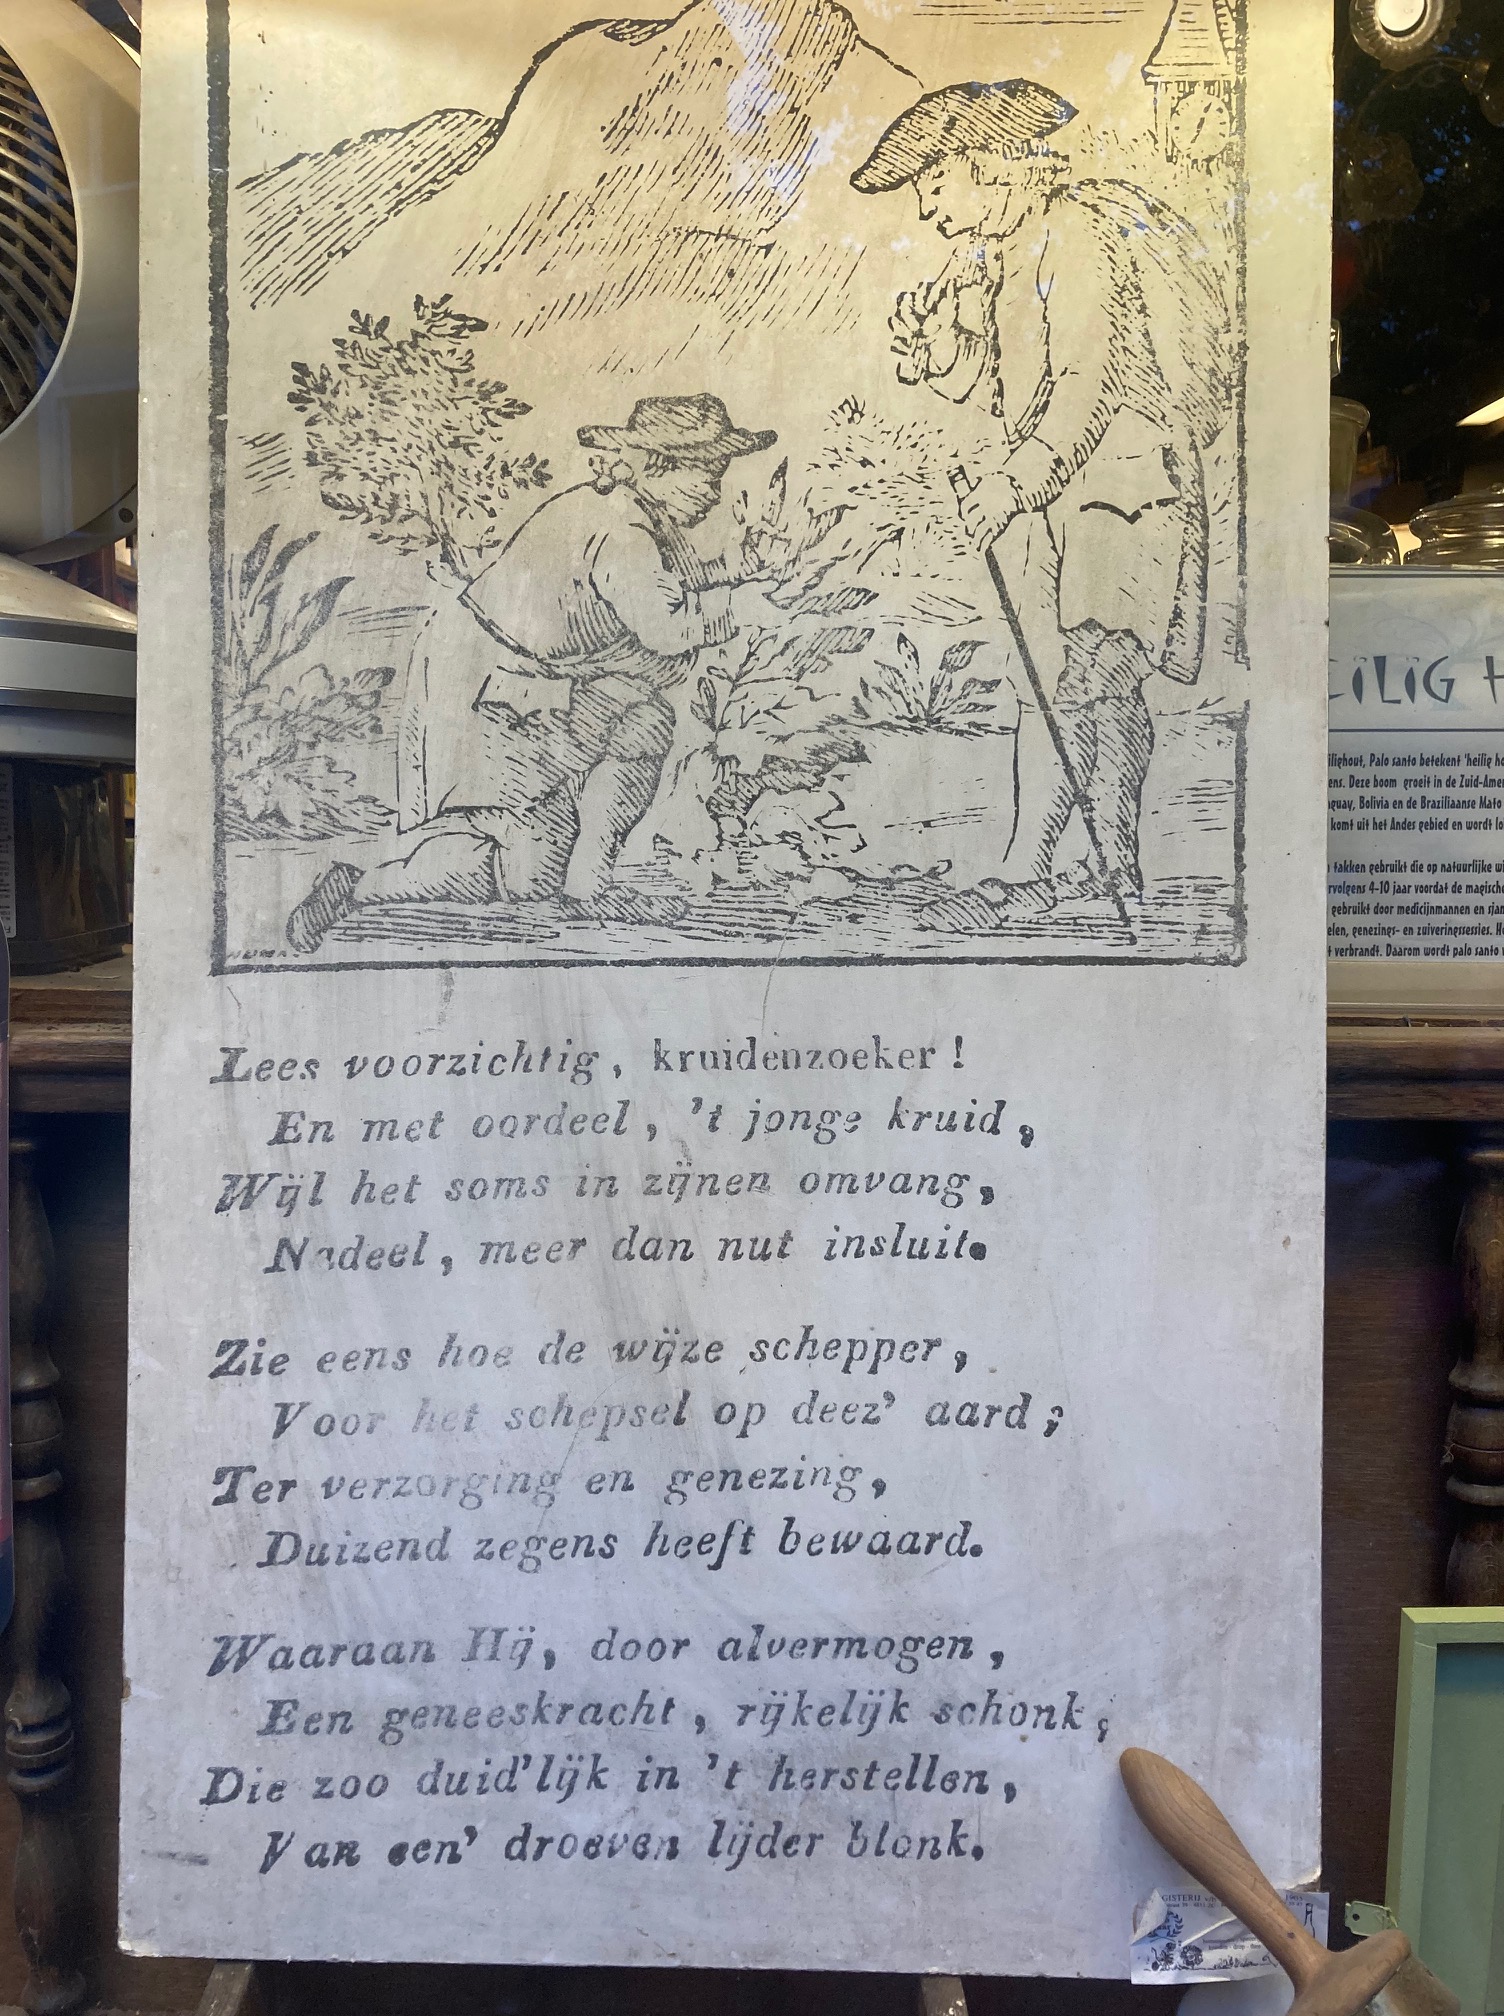 Lees voorzichtig, kruidenzoeker!
En met oordeel, 't jonge kruid,
Wijl het soms in zijnen omvang,
Nadeel, meer dan nut insluit.
Zie eens hoe de wijze schepper,
Voor het schepsel op deez' aard;
Ter verzorging en genezing,
Duizend zegens heeft bewaard.
Waaraan Hij, door alvermogen,
Een geneeskracht, rijkelijk schonk;
Die zoo duid'lijk in 't herstellen,
Van een' droeven lijder blonk.
ILIG H
ilighout, Palo santo betekent 'heilig
ens. Deze boom groeit in de
guay, Bolivia en de Braziliaanse Mato
komt uit het Andes gebied en wordt
takken gebruikt die op natuurlijke
rvolgens 4-10 jaar voordat de
gebruikt door medicijnmannen en
elen, genezings- en zuiveringssessies.
t verbrandt. Daarom wordt palo santo
GISTERIJ